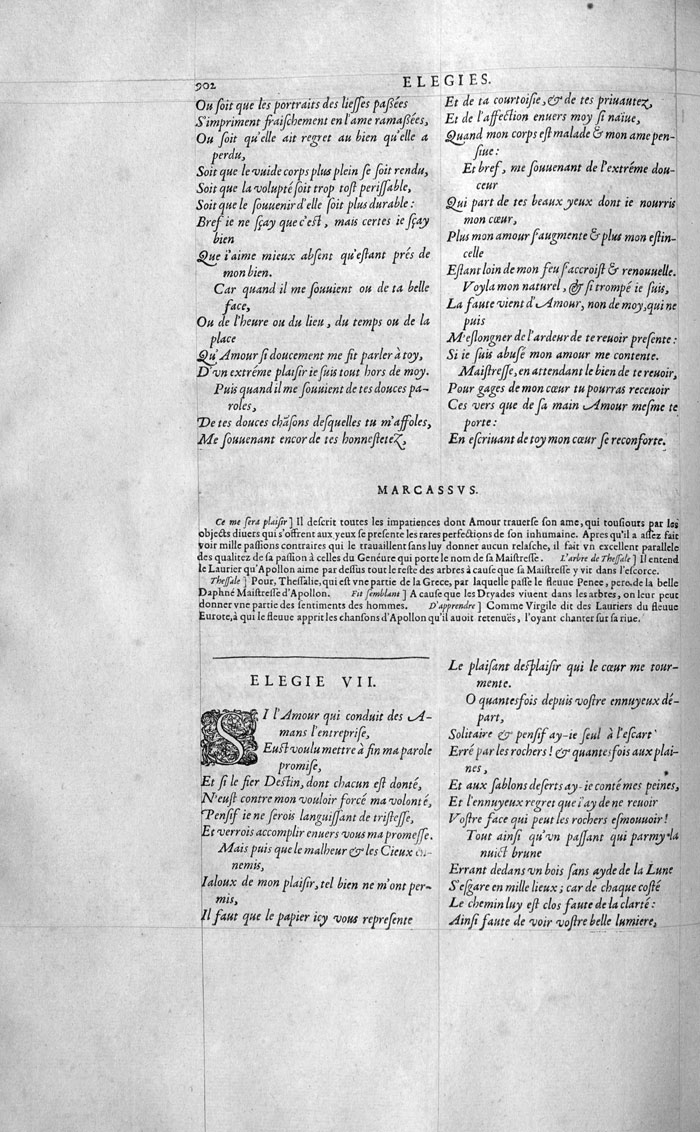 902
ELEGIES.
Ou ſoit que les portraits des lieſſes paßées
S'impriment fraiſchement en l'ame ramaßées,
Ou ſoit qu'elle ait regret au bien qu'elle a
perdu,
Soit que le vuide corps plus plein ſe ſoit rendu,
Soit que la volupté ſoit trop toſt periſſable,
Soit que le ſouuenir d'elle ſoit plus durable :
Bref ie ne ſçay que c'eſt, mais certes ie ſçay
bien
Que i'aime mieux abſent qu'eſtant prés de
mon bien.
Car quand il me ſouuient ou de ta belle
face,
Ou de l'heure ou du lieu, du temps ou de la
place
Qu'Amour ſi doucement me fit parler à toy,
D'vn extréme plaiſir ie ſuis tout hors de moy.
Puis quand il me ſouuient de tes douces pa-
roles,
De tes douces chãſons deſquelles tu m'affoles,
Me ſouuenant encor de tes honneſtetez,
Et de ta courtoiſie, & de tes priuautez,
Et de l'affection enuers moy ſi naiue,
Quand mon corps eſt malade & mon ame pen-
ſiue :
Et bref, me ſouuenant de l'extréme dou-
ceur
Qui part de tes beaux yeux dont ie nourris
mon cœur,
Plus mon amour ſ'augmente & plus mon eſtin-
celle
Eſtant loin de mon feu ſ'accroiſt & renouuelle.
Voyla mon naturel, & ſi trompé ie ſuis,
La faute vient d'Amour, non de moy, qui ne
puis
M'eſlongner de l'ardeur de te reuoir preſente :
Si ie ſuis abuſé mon amour me contente.
Maiſtreſſe, en attendant le bien de te reuoir,
Pour gages de mon cœur tu pourras receuoir
Ces vers que de ſa main Amour meſme te
porte :
En eſcriuant de toy mon cœur ſe reconforte.
MARCASSVS.
Ce me ſera plaiſir ] Il deſcrit toutes les impatiences dont Amour trauerſe ſon ame, qui touſiours par les
objects diuers qui s'offrent aux yeux ſe preſente les rares perfections de ſon inhumaine. Apres qu'il a aſſez fait
voir mille paſſions contraires qui le trauaillent ſans luy donner aucun relaſche, il fait vn excellent parallele
des qualitez de ſa paſſion à celles du Genéure qui porte le nom de ſa Maiſtreſſe. L'arbre de Theſſale ] Il entend
le Laurier qu'Apollon aime par deſſus tout le reſte des arbres à cauſe que ſa Maiſtreſſe y vit dans l'eſcorce.
Theſſale ] Pour, Theſſalie, qui eſt vne partie de la Grece, par laquelle paſſe le fleuue Penee, pere de la belle
Daphné Maiſtreſſe d'Apollon. Fit ſemblant ] A cauſe que les Dryades viuent dans les arbres, on leur peut
donner vne partie des ſentiments des hommes. D'apprendre ] Comme Virgile dit des Lauriers du fleuue
Eurote, à qui le fleuue apprit les chanſons d'Apollon qu'il auoit retenuës, l'oyant chanter ſur ſa riue.
ELEGIE VII.
SI l'Amour qui conduit des A-
mans l'entrepriſe,
Euſt voulu mettre à fin ma parole
promiſe,
Et ſi le fier Deſtin, dont chacun eſt donté,
N'euſt contre mon vouloir forcé ma volonté,
Penſif ie ne ſerois languiſſant de triſteſſe,
Et verrois accomplir enuers vous ma promeſſe.
Mais puis que le malheur & les Cieux en-
nemis,
Ialoux de mon plaiſir, tel bien ne m'ont per-
mis,
Il faut que le papier icy vous repreſente
Le plaiſant deſplaiſir qui le cœur me tour-
mente.
O quantesfois depuis voſtre ennuyeux dé-
part,
Solitaire & penſif ay-ie ſeul à l'eſcart
Erré par les rochers ! & quantesfois aux plai-
nes,
Et aux ſablons deſerts ay-ie conté mes peines,
Et l'ennuyeux regret que i'ay de ne reuoir
Voſtre face qui peut les rochers eſmouuoir !
Tout ainſi qu'vn paſſant qui parmy la
nuict brune
Errant dedans vn bois ſans ayde de la Lune
S'eſgare en mille lieux ; car de chaque coſté
Le chemin luy eſt clos faute de la clarté :
Ainſi faute de voir voſtre belle lumiere,